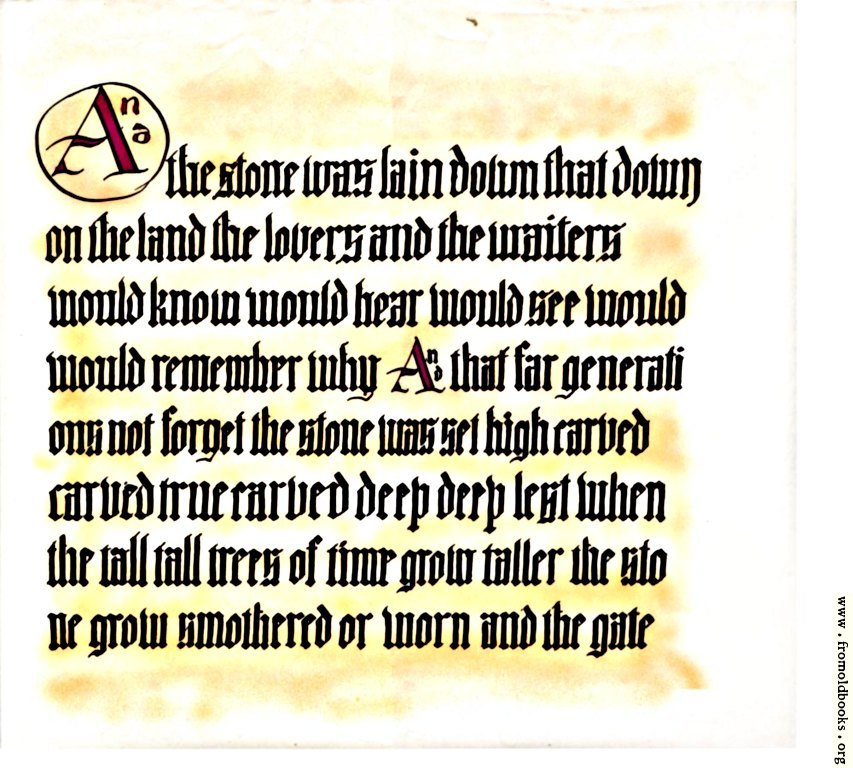 And the stone was lain down that down
on the land the lovers and the waiters
would know would hear would see would
would remember why And that far generati
ons not forget the stone was set high carved
carved true carved deep deep lest when
the tall tall trees of time grow taller the sto
ne grow smothered or worn and the gate
www.fromoldbooks.org